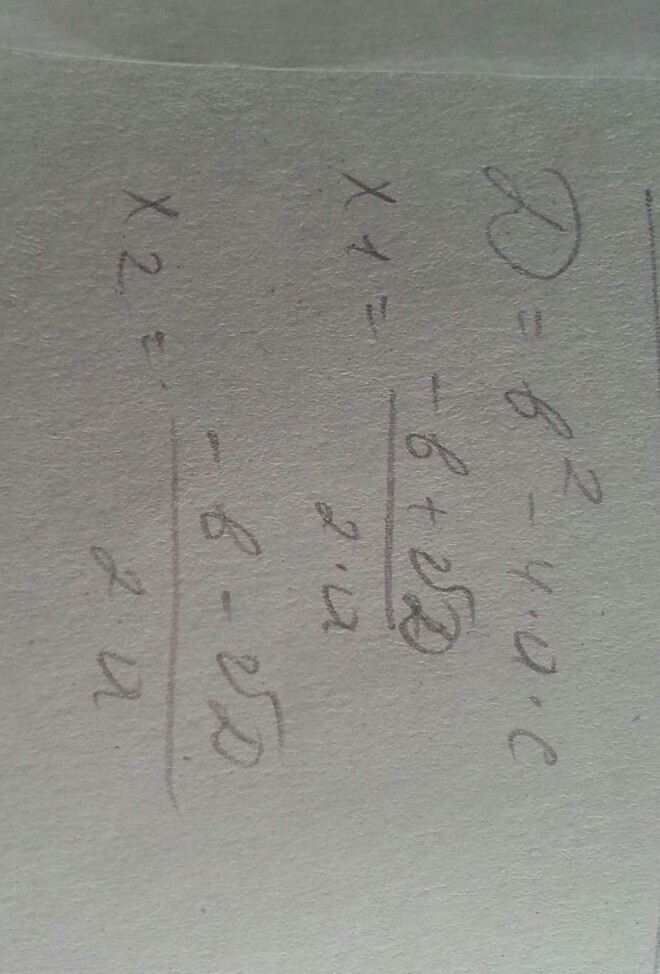 D = b² - 4·a·c
x1 = (-b + √D) / (2·a)
x2 = (-b - √D) / (2·a)